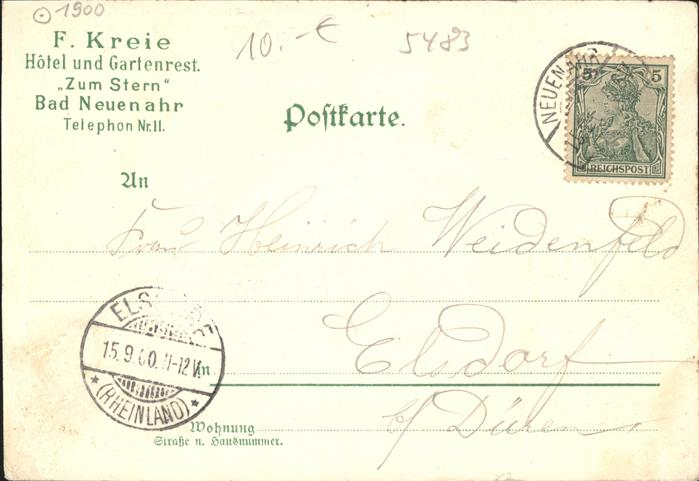 1900
F. Kreie
Hôtel und Gartenrest.
„Zum Stern“
Bad Neuenahr
Telephon Nr. 11.
10.-€
5483
NEUENAHR
5 5
REICHSPOST
Postkarte.
An
Frau Heinrich Weidenfeld
Elsdorf
b/ Düren
in
15.9.00. 11-12 V.
(RHEINLAND)
Wohnung
Straße u. Hausnummer.